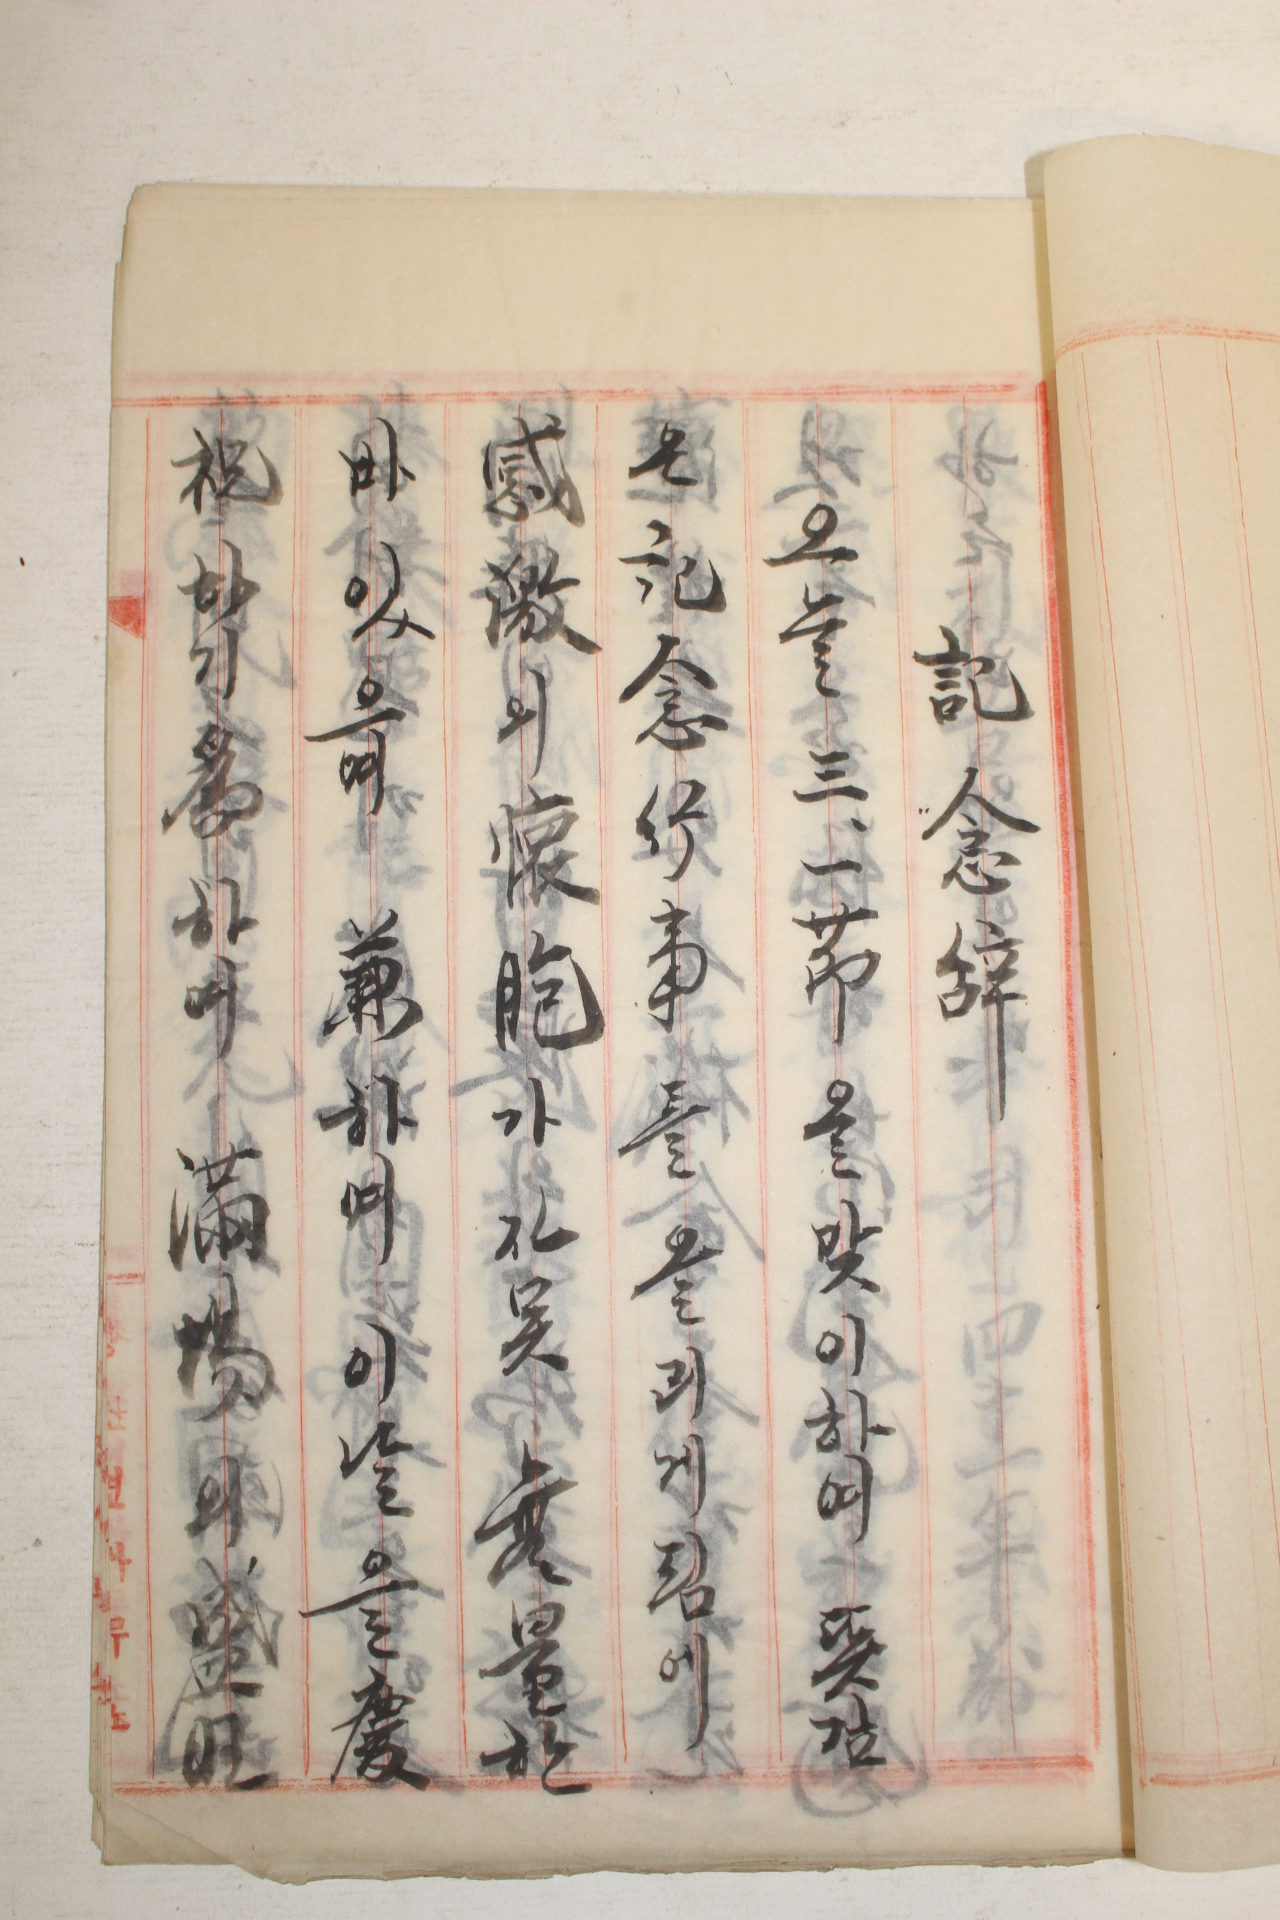 記念辭
오늘 三、一節을 맞이하여 뜻깊
은 記念行事를 올리게 됨에
感激의 懷抱가 자못 無量한
바 있으며 兼하여 이날을 慶
祝하기 爲하여 滿場의 盛旺